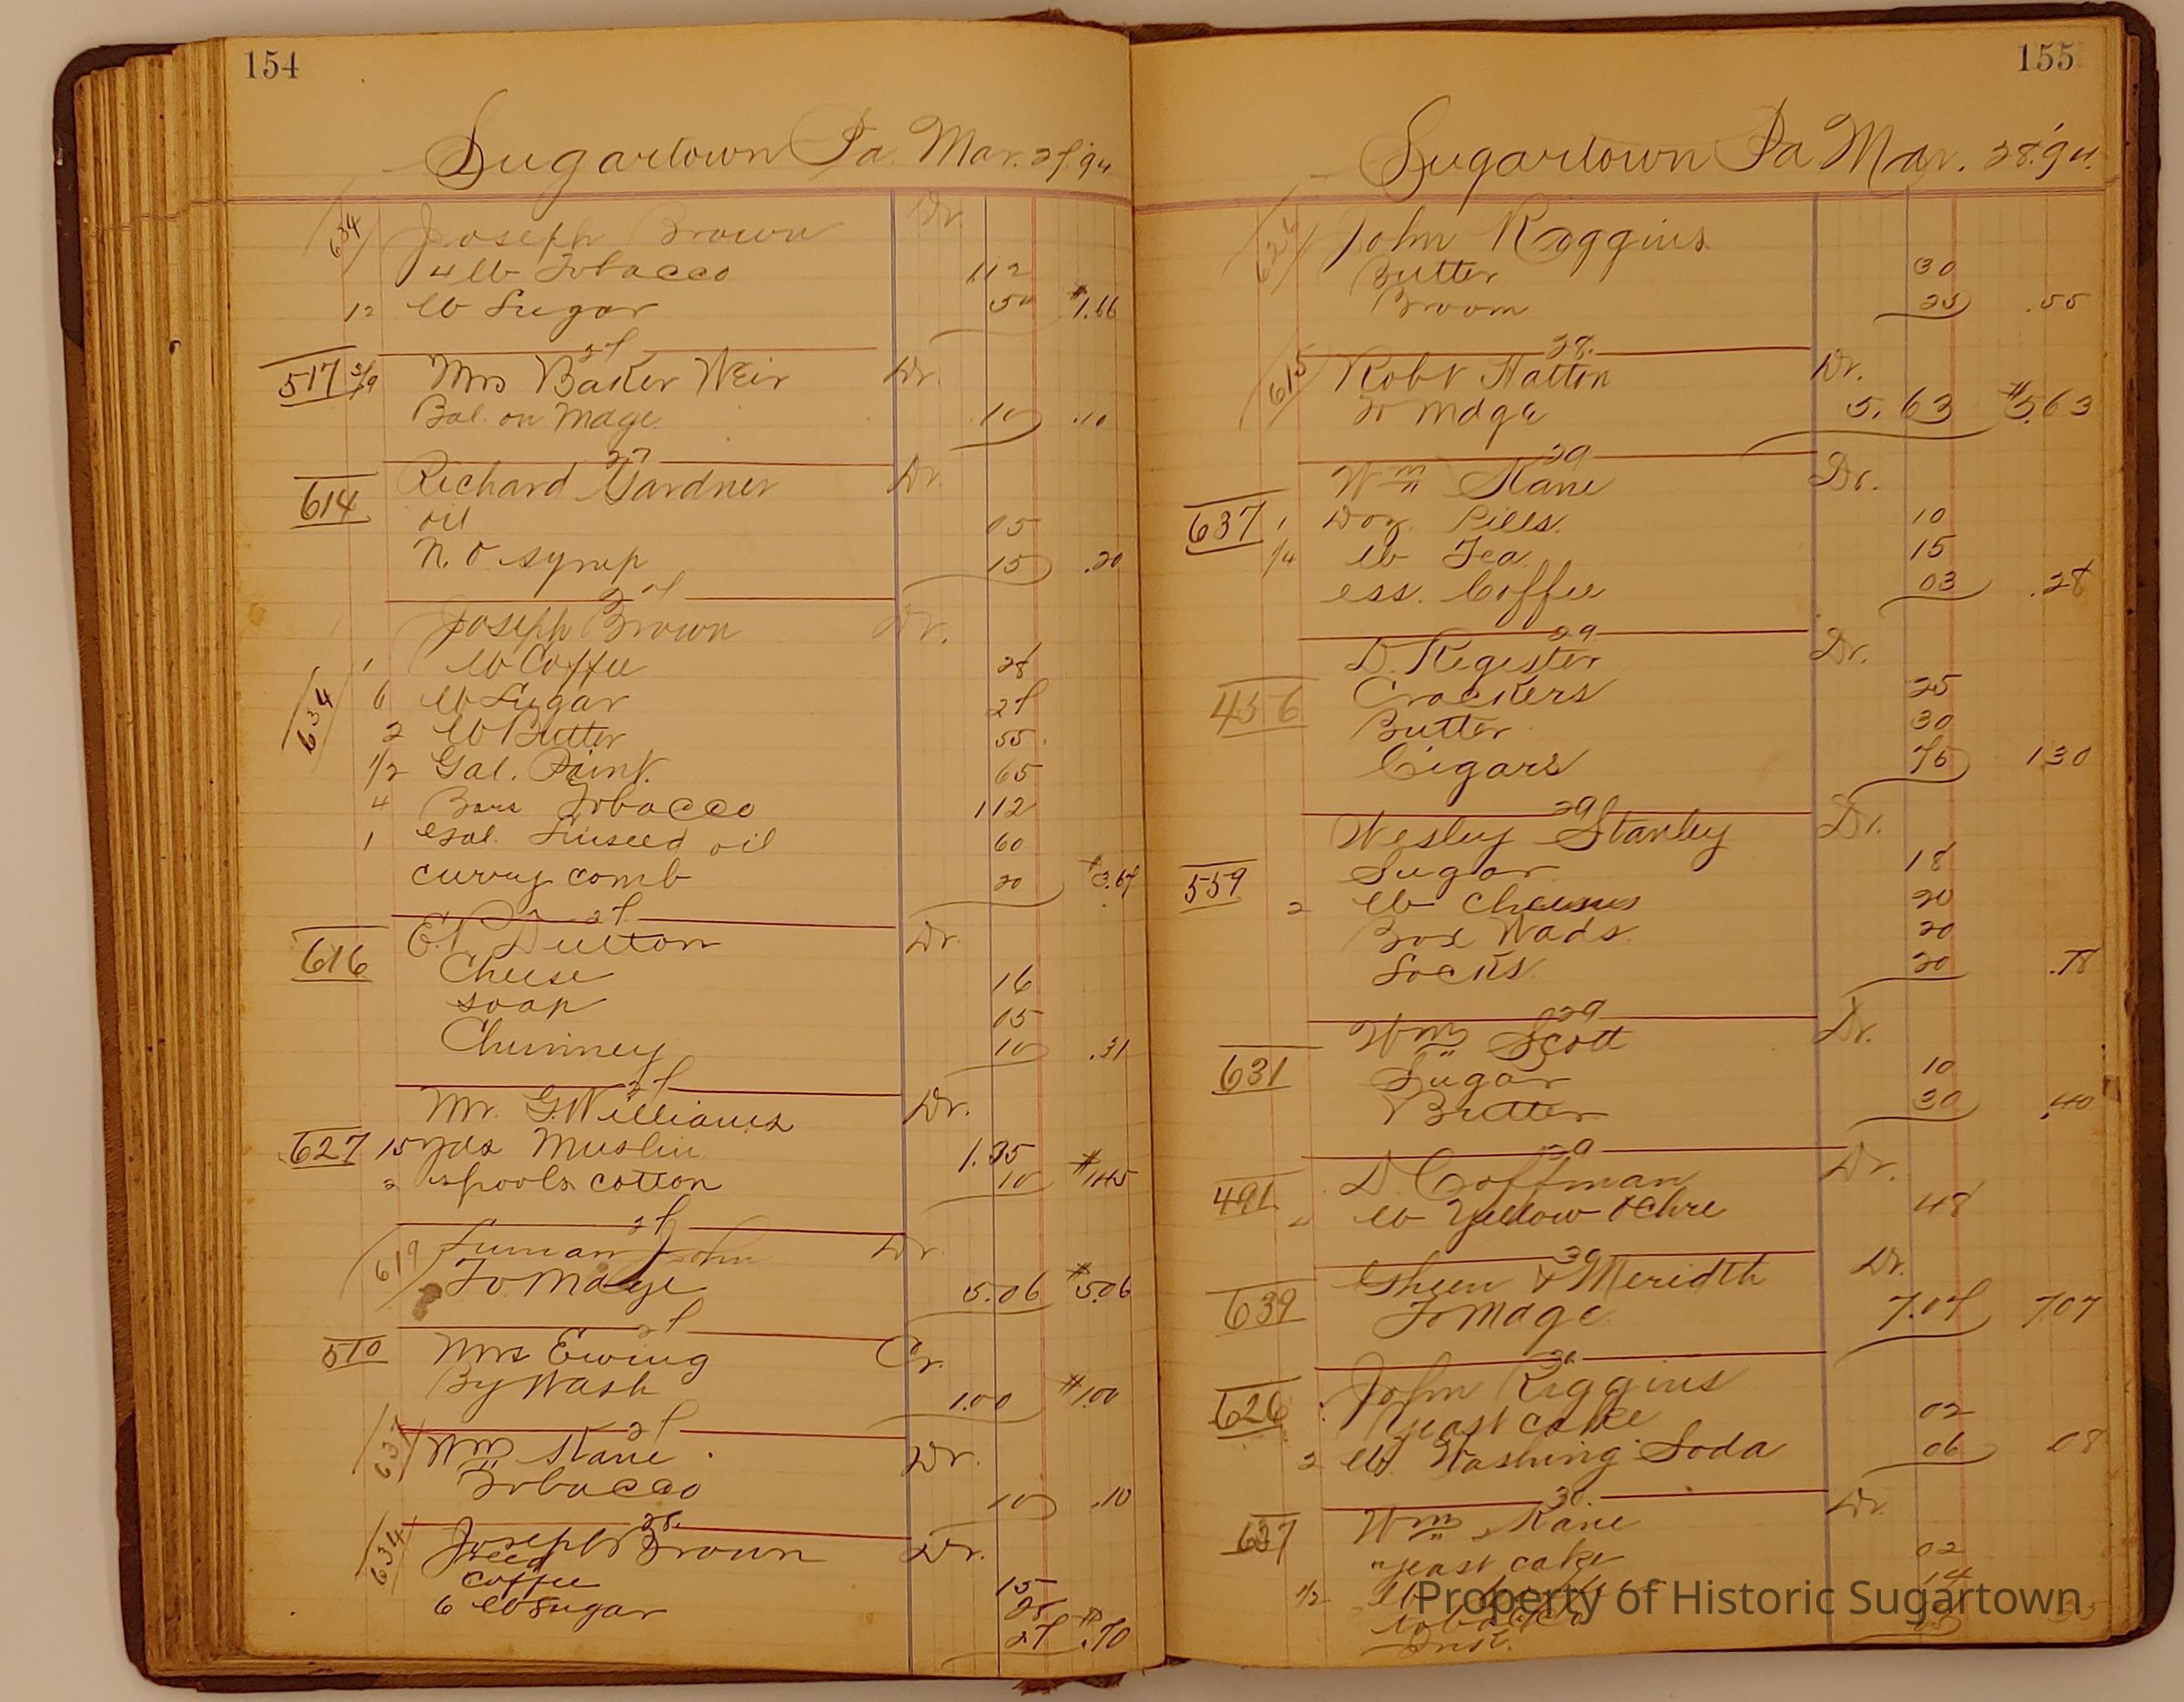 154
Sugartown Pa. Mar. 27. 94
634 Joseph Brown Dr.
4 lb Tobacco 112
12 lb Sugar 54 $1.66
27
517 3/9 Mrs Baker Weir Dr.
Bal. on Mdge. 10 .10
27
614 Richard Gardner Dr.
oil 05
N. O syrup 15 .20
27
Joseph Brown Dr.
1 lb Coffee 28
634 6 lb Sugar 27
2 lb Butter 55
1/2 Gal. Paint. 65
4 Bars Tobacco 112
1 Gal. Linseed oil 60
curry comb 20 $3.67
27
616 Dutton Dr.
Cheese 16
soap 05
Chimney 10 .31
27
Mr. G. Williams Dr.
627 15 yds Muslin 1.35
2 spools cotton 10 $1.45
27
619 John Dr.
To Mdge 5.06 $5.06
27
510 Mrs Ewing Cr.
By Wash 1.00 $1.00
27
637 Wm Kane Dr.
Tobacco 10 .10
28.
634 Joseph Brown Dr.
Feed 15
Coffee 28
6 lb Sugar 27 $.70
155
Sugartown Pa Mar. 28. '94.
626 John Roggins
Butter 30
Broom 25 .55
28.
615 Robt Hatton Dr.
To Mdge 5.63 $5.63
29
Wm Kane Dr.
637 1 Doz. Pills. 10
1/4 lb Tea 15
ess. Coffee 03 .28
29
D. Register Dr.
456 Crackers 25
Butter 30
Cigars 75 130
29
Wesley Stanley Dr.
Sugar 18
559 2 lb Cheese 20
Box Wads. 20
Socks 20 .78
29
Wm Scott Dr.
631 Sugar 10
Butter 30 .40
29
D. Coffman Dr.
491 lb Yellow Ochre 48
30
Gheen & Meridth Dr.
639 To Mdge 7.07 707
30
626 John Riggins
yeast cake 02
2 lb Washing Soda 06 08
30.
637 Wm Kane Dr.
yeast cake 02
1/2 lb 14
tobacco
Property of Historic Sugartown